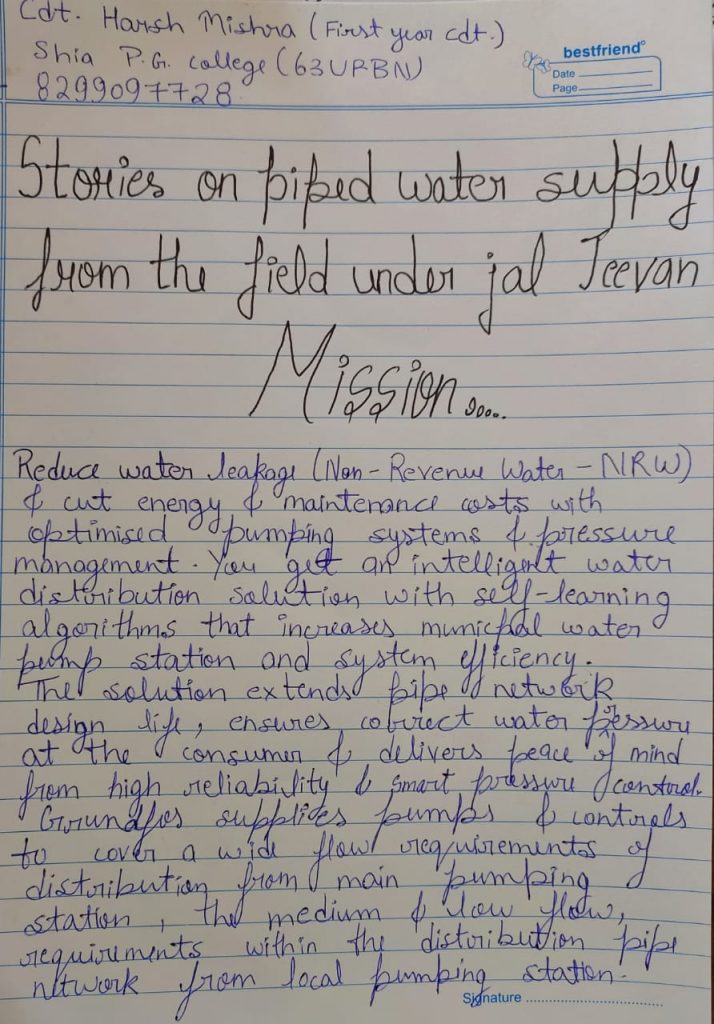 Cdt. Harsh Mishra (First year cdt.)
Shia P.G. college (63UPBN)
8299097728
bestfriend
Date
Page
Stories on piped water supply
from the field under jal Jeevan
Mission....
Reduce water leakage (Non-Revenue Water - NRW)
& cut energy & maintenance costs with
optimised pumping systems & pressure
management. You get an intelligent water
distribution solution with self-learning
algorithms that increases municpal water
pump station and system efficiency.
The solution extends pipe network
design life, ensures correct water pressure
at the consumer & delivers peace of mind
from high reliability & smart pressure control.
Grundfos supplies pumps & controls
to cover a wide flow requirements of
distribution from main pumping
station, the medium & low flow,
requirements within the distribution pipe
network from local pumping station.
Signature